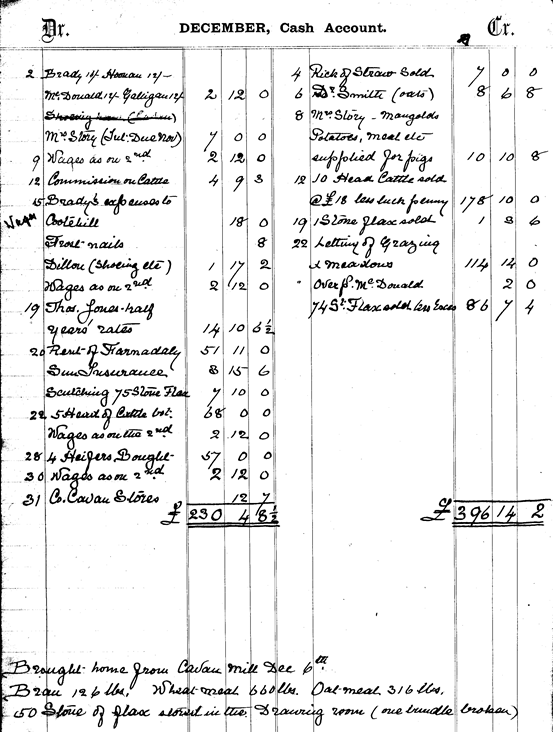 Dr. DECEMBER, Cash Account. Cr.
2 Brady 14 Heenan 12/-
McDonald 12/- Galligan 12/- 2 12 0
Mrs Story (Int. Due Nov) 7 0 0
9 Wages as on 2nd 2 12 0
12 Commission on Cattle 4 9 3
15 Brady's expenses to
Wages Cootehill 18 0
Frost-nails 8
Dillon (Shoeing etc) 1 17 2
Wages as on 2nd 2 12 0
19 Thos. Jones-half
years' rates 14 10 6½
20 Rent of Farnadaly 51 11 0
Sun Insurance 8 15 6
Scutching 75 Stone Flax 7 10 0
22 5 Head of Cattle bot. 68 0 0
Wages as on the 2nd 2 12 0
28 4 Heifers Bought- 57 0 0
30 Wages as on 2nd 2 12 0
31 Co. Cavan Stores 12 7
£ 230 4 8½
4 Rick of Straw Sold 7 0 0
6 Dr. Smith (oats) 8 6 8
8 Mrs Story - Mangolds
Potatoes, meal etc
supplied for pigs 10 10 8
12 10 Head Cattle sold
@ £18 less luck penny 178 10 0
19 1 Stone flax sold 1 3 6
22 Letting of Grazing
& meadows 114 14 0
" Over p. McDonald 2 0
74 St. Flax sold less Exes 86 7 4
£ 396 14 2
Brought home from Cavan Mill Dec 6th
Bran 126 lbs. Wheat-meal 660 lbs. Oat-meal 316 lbs.
50 Stone of flax stored in the Drawing room (one bundle broken)